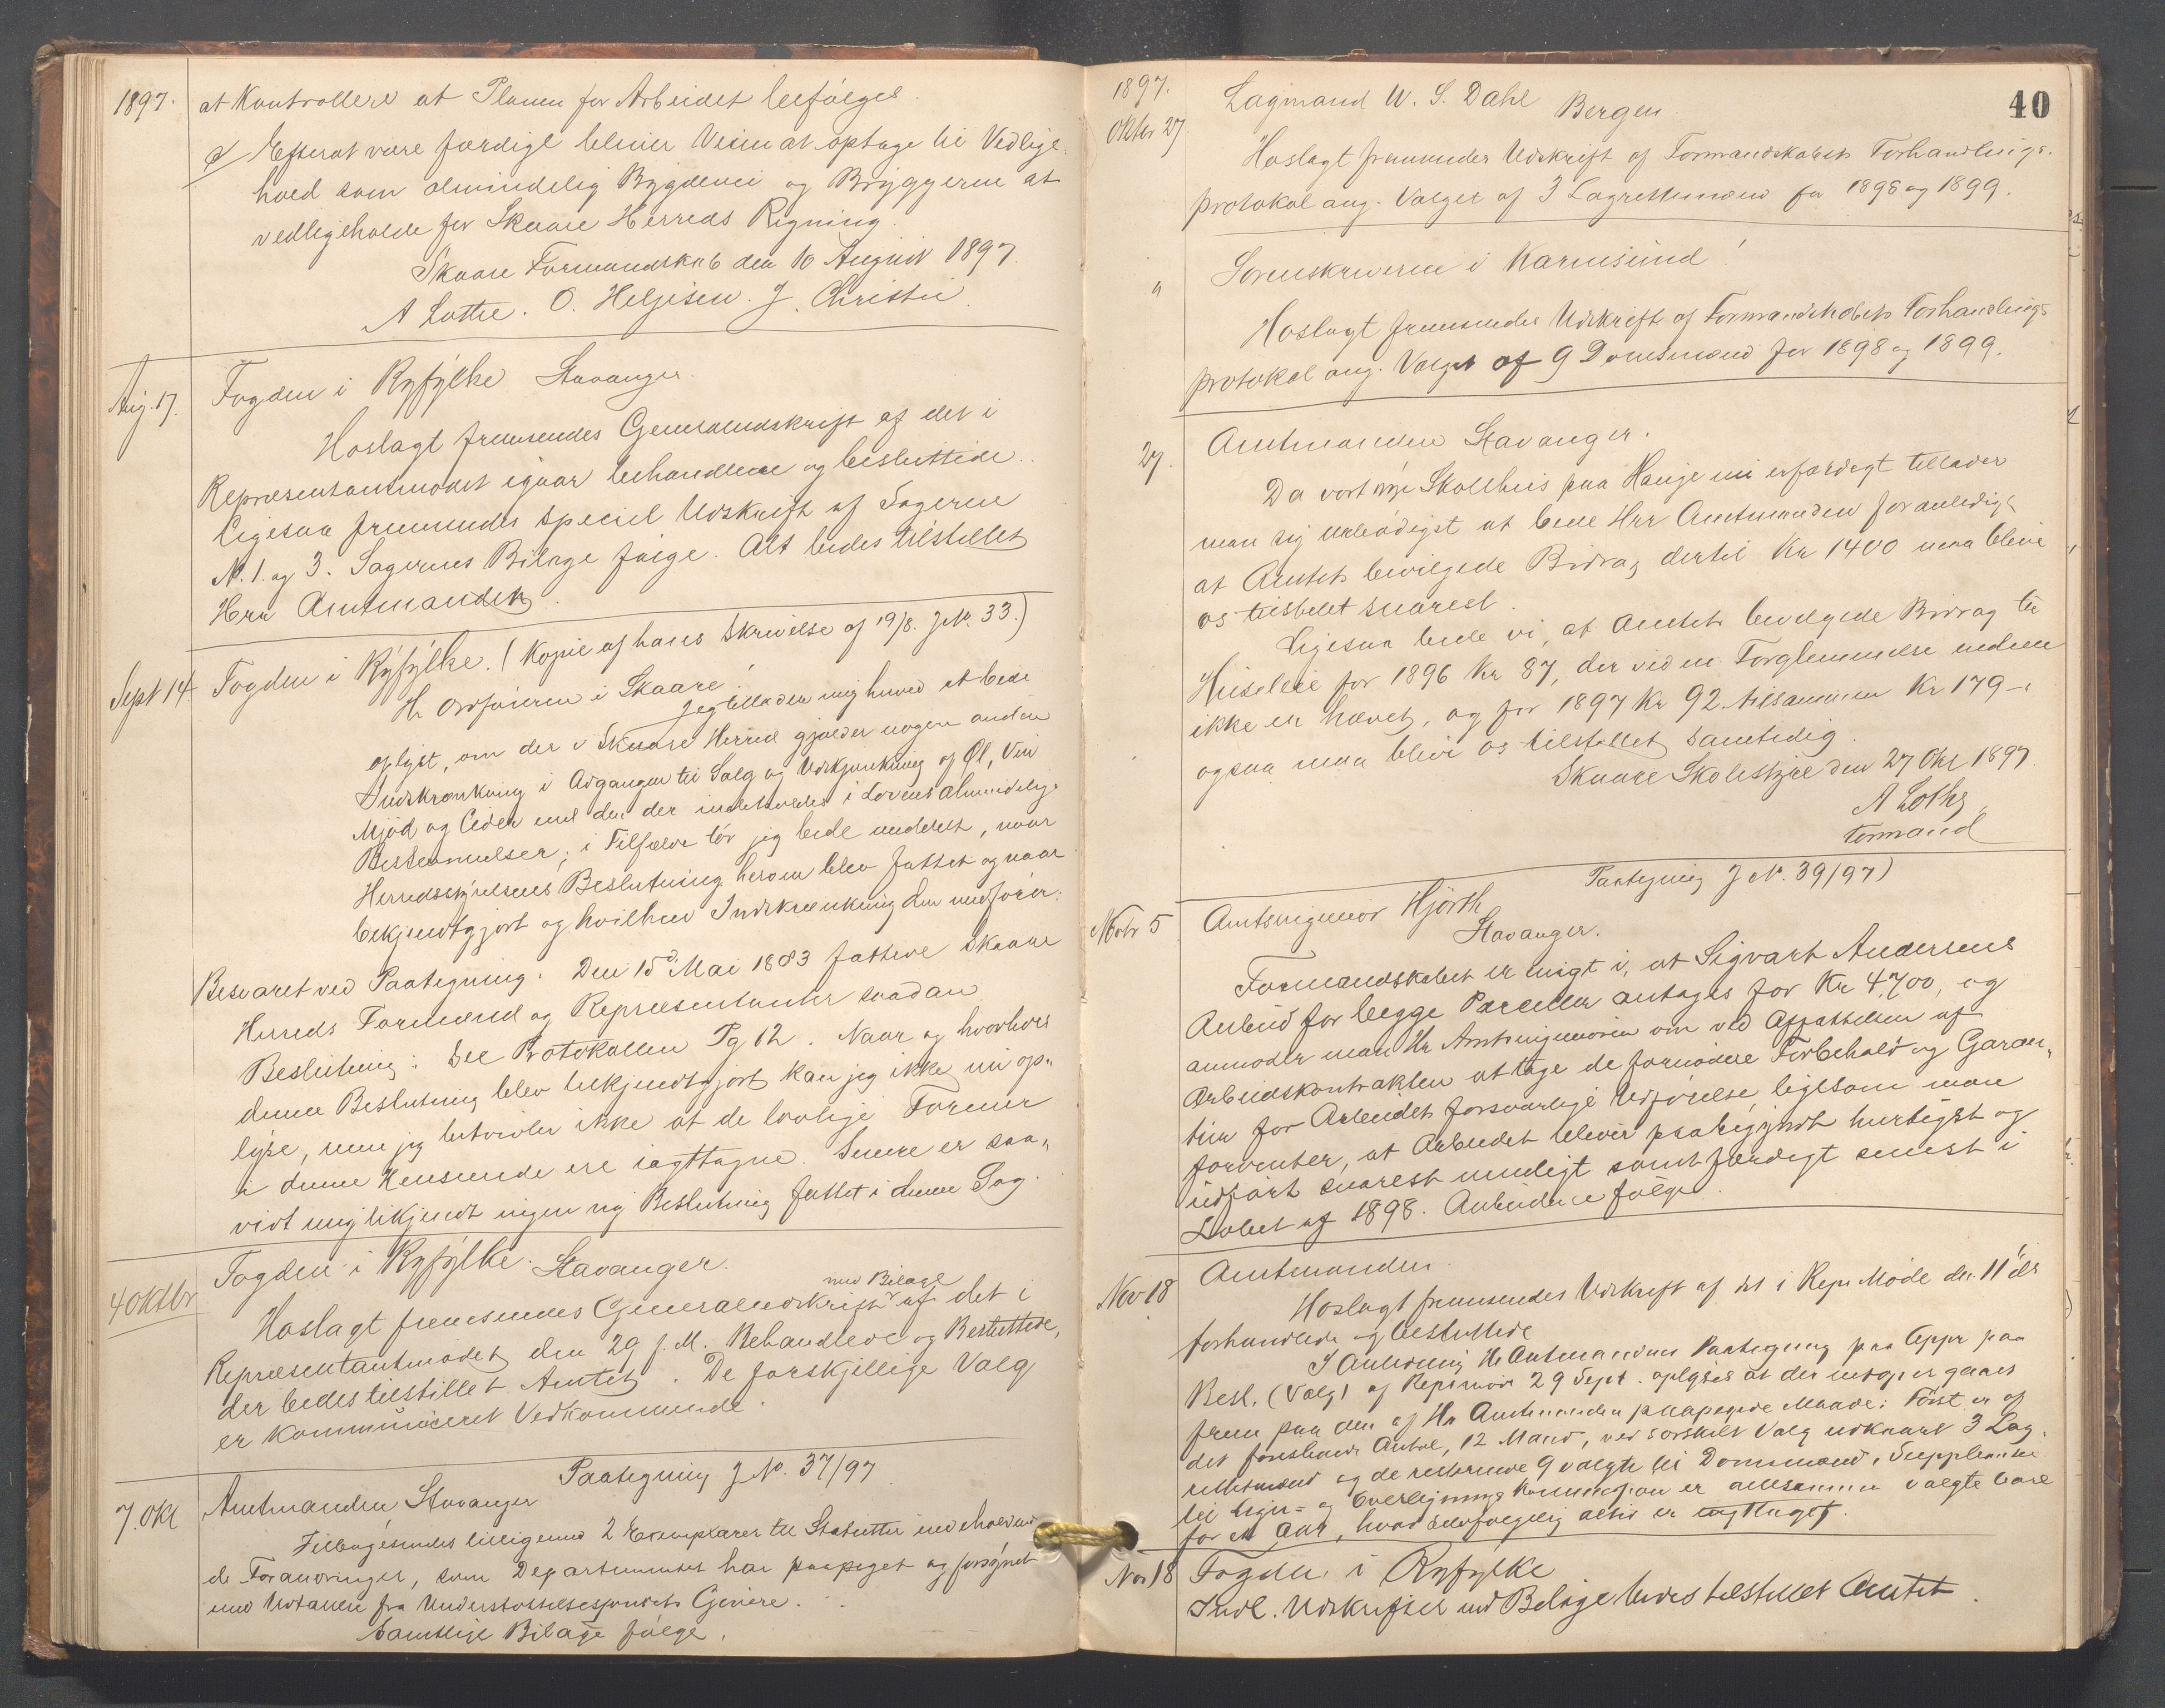 1897. at Kontrollere at Planen for Arbeidet befølges.
d Efterat være færdigt bliver Veien at optage til Vedlige-
hold som almindelig Bygdevei og Bryggerne at
vedligeholde for Skaare Herreds Regning.
Skaare Formandskab den 10 August 1897.
A Lothe. O. Helgesen. J. Christie.
Aug. 17. Fogden i Ryfylke Stavanger.
Hoslagt fremsendes Generaludskrift af det i
Repræsentantmødet igaar behandlede og besluttede.
Ligesaa fremsendes Speciel Udskrift af Sagerne
N. 1. og 3. Sagernes Bilage følge. Alt bedes tilstillet
Herr Amtmanden.
Sept 14. Fogden i Ryfylke. (Kopie af hans Skrivelse af 19/8. J№. 33.)
Hr Ordføreren i Skaare!
Jeg tillader mig herved at bede
oplyst, om der i Skaare Herred gjælder nogen anden
Indskrænkning i Adgangen til Salg og Udskjænkning af Øl, Vin
Mjød og Cider end den der indeholdes i Lovens almindelige
Bestemmelser; i Tilfælde tør jeg bede meddelt, naar
Herredsstyrelsens Beslutning herom blev fattet og naar
bekjendtgjort og hvilken Indskrænkning den medfører.
Besvaret ved Paategning: Den 15d Mai 1883 fattede Skaare
Herreds Formænd og Repræsentanter saadan
Beslutning: See Protokollen Pg 12. Naar og hvorhos
denne Beslutning blev bekjendtgjort kan jeg ikke nu op-
lyse, men jeg betvivler ikke at de lovlige Former
i denne Henseende ere iagttagne. Senere er saa-
vidt mig bekjendt ingen ny Beslutning fattet i denne Sag.
4 Oktbr Fogden i Ryfylke. Stavanger.
med Bilage
Hoslagt fremsendes Generaludskrift af det i
Repræsentantmødet den 29 f. M. Behandlede og Besluttede,
der bedes tilstillet Amtet. De forskjellige Valg
er kommuniceret Vedkommende.
Paategning J №. 37/97
7. Okt Amtmanden, Stavanger
Tilbagesendes tilligemed 2 Exemplarer til Statutter indeholdende
de Forandringer, som Departementet har paapeget og forsynet
med Udtalelse fra Understøttelsesfondets Givere.
Samtlige Bilage følge.
40
1897. Lagmand W. S. Dahl Bergen.
Oktbr 27 Hoslagt fremsendes Udskrift af Formandskabets Forhandlings-
protokol ang. Valget af 3 Lagrettemænd for 1898 og 1899.
" Sorenskriveren i Karmsund!
Hoslagt fremsendes Udskrift af Formandskabets Forhandlings-
protokol ang. Valget af 9 Domsmænd for 1898 og 1899.
27. Amtmanden Stavanger.
Da vort nye Skolehus paa Hauge nu er færdigt tillader
man sig ærbødigst at bede Hrr Amtmanden foranlediget
at Amtets bevilgede Bidrag dertil Kr 1400 maa blive
os tilstillet snarest.
Ligesaa bede vi, at Amtets bevilgede Bidrag til
Husleie for 1896 Kr 87, der ved en Forglemmelse endnu
ikke er hævet, og for 1897 Kr 92. tilsammen Kr 179-,
ogsaa maa blive os tilstillet samtidig.
Skaare Skolestyre den 27 Okt 1897.
A Lothe,
Formand
Paategning J №. 39/97)
Novbr 5 Amtsingeniør Hjorth
Stavanger.
Formandskabet er enigt i, at Sigvart Andersens
Anbud for begge Parceller antages for Kr 4,700, og
anmoder man Hr Amtsingeniøren om ved Affattelsen af
Arbeidskontrakten at tage de fornødne Forbehold og Garan-
tier for Arbeidets forsvarlige Udførelse, ligesom man
forventer, at Arbeidet bliver paabegyndt hurtigst og
udført snarest muligt samt færdigt senest i
Løbet af 1898. Anbudene følge.
Nov 18 Amtmanden.
Hoslagt fremsendes Udskrift af det i Repr. Møde den 11 ds
forhandlede og besluttede
I Anledning Hr Amtmandens Paategning paa Appr paa
Besl. (Valg) af Reprmøde 29 Sept. oplyses at der netop er gaaet
frem paa den af Hr Amtmanden paapegede Maade: Først er af
det foreslaaede Antal, 12 Mand, ved særskilt Valg udkaaret 3 Lag-
rettemænd og de resterende 9 valgte til Domsmænd. Suppleanter
til Lign- og Overligningskommission er allesammen valgte bare
for et Aar, hvad selvfølgelig altid er iagttaget.
Nov 18 Fogden i Ryfylke
Indl. Udskrifter med Bilage bedes tilstillet Amtet.